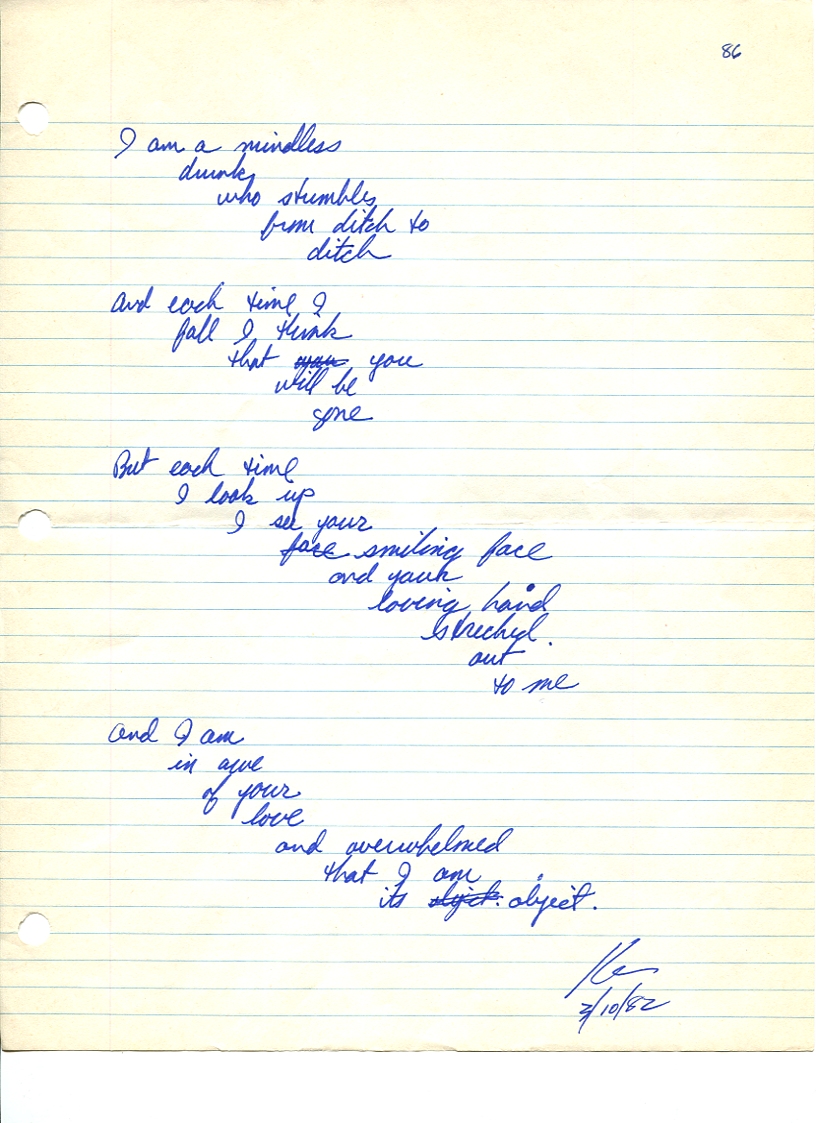 86
I am a mindless
drunk,
who stumbles
from ditch to
ditch
And each time I
fall I think
that you
will be
gone
But each time
I look up
I see your
face smiling face
and your
loving hand
streched.
out
to me
And I am
in awe
of your
love
and overwhelmed
that I am
its object.
3/10/82